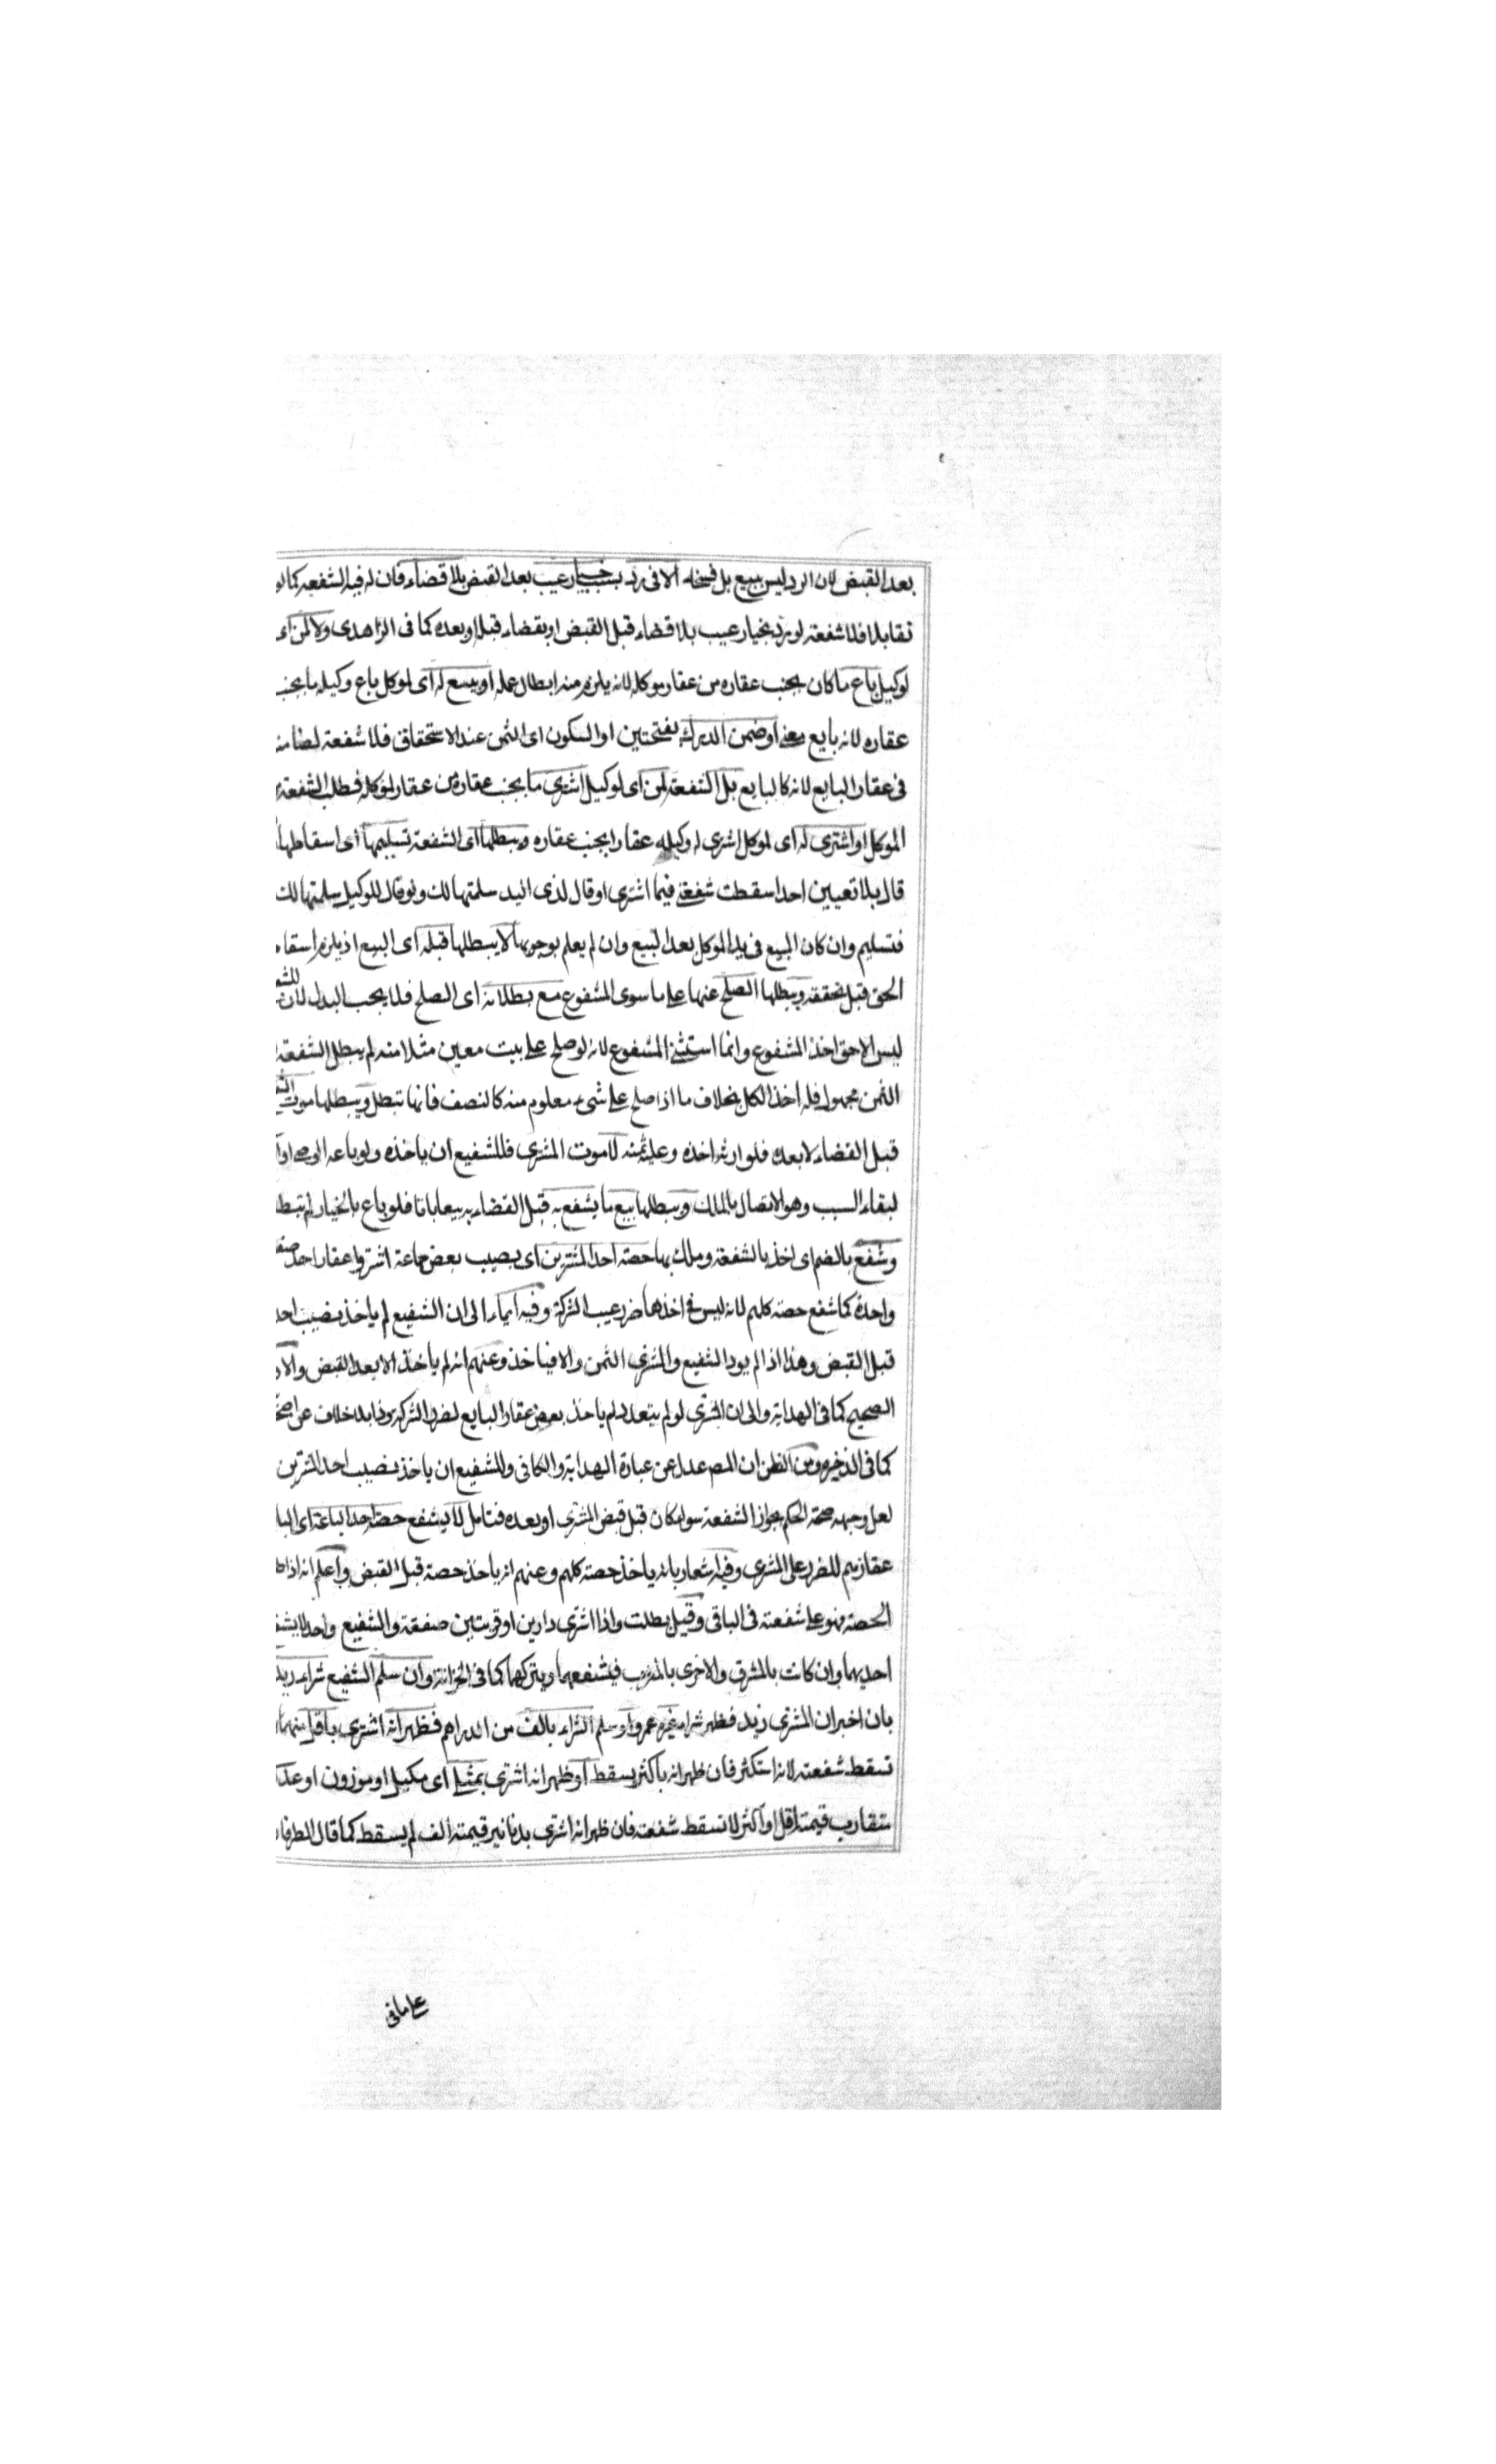 بعد القبض لان الرد ليس ببيع بل فسخا الا فى رد بسبب خيار عيب بعد القبض بلا قضاء فان له فيه الشفعه كما لو
تقايلا فلا شفعته لو رد بخيار عيب بلا قضاء قبل القبض او بقضاء قبله او بعده كما فى الزاهدى ولا لمن اى
لوكيل باع ما كان بجنب عقاره من عقار موكله لانه يلزم منه ابطال عمله او بيع له اى لموكل باع وكيله ما بجنب
عقاره لانه بايع معنى او ضمن الدرك بفتحتين او السكون اى الثمن عند الاستحقاق فلا شفعة لضامنه
فى عقار البايع لانه كالبايع بل الشفعة لمن اى لوكيل اشترى ما بجنب عقاره من عقار لموكله فطلب الشفعة
الموكل او اشترى له اى لموكل اشترى له وكيله عقارا بجنب عقاره ويبطلها اى الشفعة تسليمها اى اسقاطها
قال بلا تعيين احد اسقطت شفعتى فيما اشترى او قال لذى اليد سلمتها لك ولو قال للوكيل سلمتها لك
فتسليم وان كان المبيع فى يد الموكل بعد البيع وان لم يعلم بوجوبها لا يبطلها قبله اى البيع اذ يلزم اسقاء
الحق قبل تحققه ويبطلها الصلح عنها على ما سوى المشفوع مع بطلانه اى الصلح فلا يجب البدل لان
ليس الا حق اخذ المشفوع وانما استثنى المشفوع لانه لو صلح على بيت معين مثلا منه لم يبطل الشفعة
الثمن مجهول فله اخذ الكل بخلاف ما اذا صلح على شىء معلوم منه كالنصف فانها تبطل ويبطلها موت
قبل القضاء لا بعده فلوارثه اخذه وعليه ثمنه لا موت المشترى فللشفيع ان ياخذه ولو باعه الوصى او
لبقاء السبب وهو الاتصال بالملك ويبطلها بيع ما يشفع به قبل القضاء به بيعا باتا فلو باع بالخيار لم تبطل
وشفع بالضم اى اخذ بالشفعة وملك بها حصة احد المشترين اى نصيب بعض جماعة اشتروا عقار احد صفقة
واحدة كما شفع حصة كلهم لانه ليس فى اخذها ضرر عيب الشركة وفيه ايماء الى ان الشفيع لم ياخذ نصيب احد
قبل القبض وهذا اذا لم يود الشفيع والمشترى الثمن والا فياخذ وعنهم انه لم ياخذ الا بعد القبض والاول
الصحيح كما فى الهداية والى ان المشترى لو لم يتعدد لم ياخذ بعض عقار البايع لضرر الشركة وذا بلا خلاف عن اصحا
كما فى الذخيرة ومن الظن ان المص عدل عن عبارة الهداية والكافى وللشفيع ان ياخذ نصيب احد المشترين
لعل وجهه صحة الحكم بجواز الشفعة سواء كان قبل قبض المشترى او بعده فتامل لا يشفع حصة احد الباعة اى البا
عقارهم للضرر على المشترى وفيه اشعار بانه ياخذ حصة كلهم وعنهم انه ياخذ حصة قبل القبض واعلم انه اذا ط
الحصة فهو على شفعته فى الباقى وقيل بطلت واذا اشترى دارين او قريتين صفقة والشفيع واحد لا يشفع
احديهما وان كانت بالمشرق والاخرى بالمغرب فيشفعهما او يتركهما كما فى الخزانة وان سلم الشفيع شراء زيد
بان اخبر ان المشترى زيد فظهر شراء غيره عمرو او سلم الشراء بالف من الدراهم فظهر انه اشترى باقل منهما
تسقط شفعته لانه استكثر فان ظهر انه باكثر يسقط او ظهر انه اشترى بمثلى اى مكيل او موزون او عدد
متقارب قيمته اقل او اكثر لا تسقط شفعته فان ظهر انه اشترى بدنانير قيمته الف لم يسقط كما قال الطرفان
على ما فى